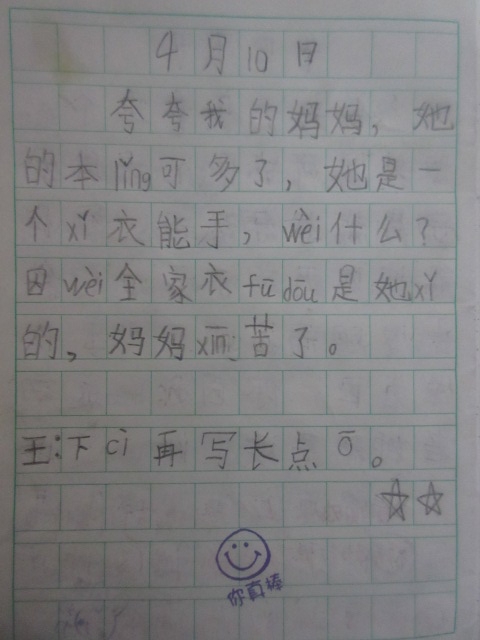 4月10日
夸夸我的妈妈，她
的本lǐng可多了，她是一
个xǐ衣能手，wèi什么？
因wèi全家衣fū dōu是她xǐ
的，妈妈xīn苦了。
王：下cì再写长点ō。
☆☆
你真棒